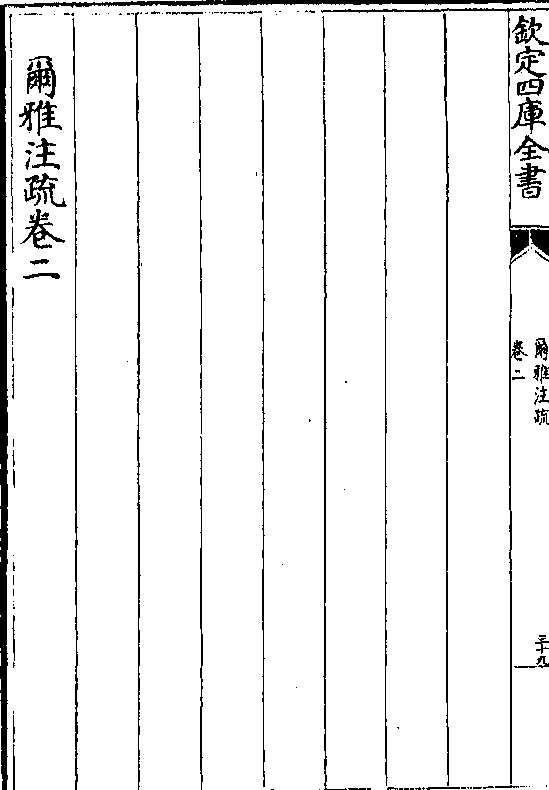 欽定四庫全書
爾雅注疏
卷二
三十九
爾雅注疏卷二